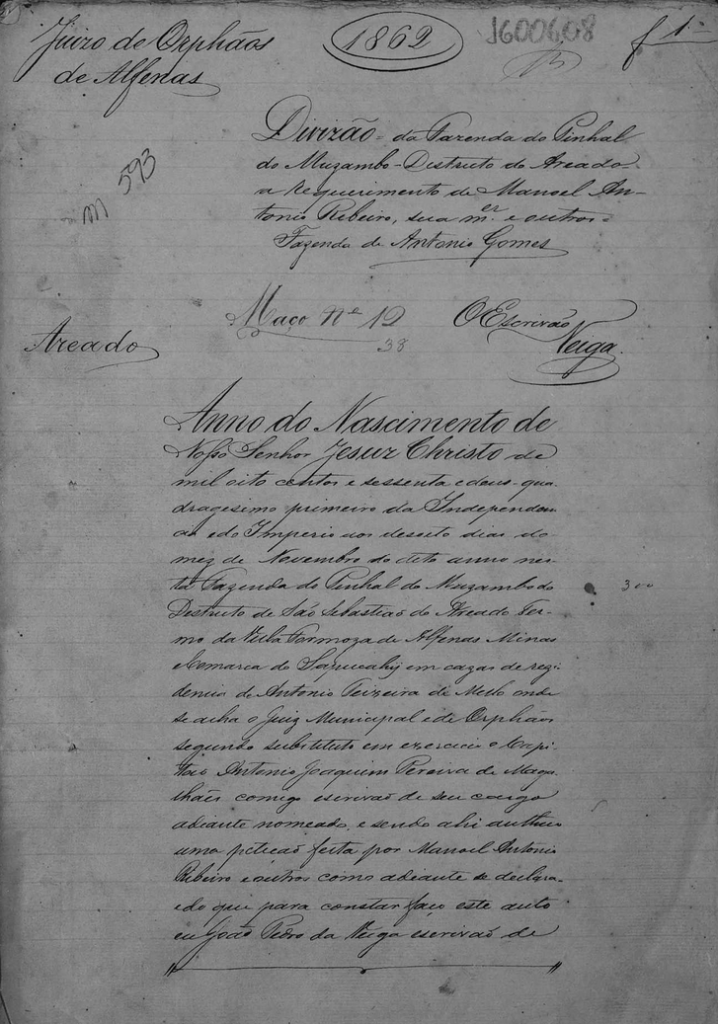 Juizo de Orphãos
de Alfenas
1862
J600608
f 1
m 593
Divizão da Fazenda do Pinhal
do Muzambo - Districto do Areado
a requerimento de Manoel An-
tonio Ribeiro, sua m.er e outros =
Fazenda de Antonio Gomes
Maço Nº 12
38
O Escrivão
Veiga
Areado
Anno do Nascimento de
Nosso Senhor Jesuz Christo de
mil oito centos e sessenta e dous qua
dragesimo primeiro da Independen
cia e do Imperio aos desoito dias do
mez de Novembro do dito anno nes-
ta Fazenda do Pinhal do Muzambo do
Districto de São Sebastião do Areado Ter-
mo da Villa Formoza de Alfenas Minas
Comarca do Sapucahy em cazas de rezi
dencia de Antonio Teixeira de Mello onde
se acha o Juiz Municipal e de Orphãos
segundo substituto em exercicio o Capi
tão Antonio Joaquim Pereira de Maga
lhães comigo escrivão de seu cargo
adiante nomeado, e sendo ahi authuo
uma petição feita por Manoel Antonio
Ribeiro e outros como adiante se declara
e do que para constar faço este auto
eu João Pedro da Veiga escrivão de
300